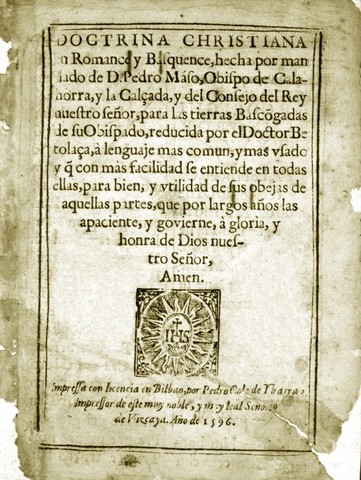 DOCTRINA CHRISTIANA
en Romance y Basquence, hecha por man
dado de D. Pedro Máso, Obispo de Cala-
horra, y la Calçada, y del Consejo del Rey
nuestro señor, para las tierras Bascõgadas
de su Obispado, reducida por el Doctor Be
tolaça, à lenguaje mas comun, y mas vsado
y q̃ con màs facilidad se entiende en todas
ellas, para bien, y vtilidad de sus obejas de
aquellas partes, que por largos años las
apaciente, y govierne, à gloria, y
honra de Dios nues-
tro Señor,
Amen.
IHS
Impressa con licencia en Bilbao, por Pedro Cole de Ybarra,
Impressor de este muy noble, y muy leal Señorio
de Vizcaya. Año de 1596.